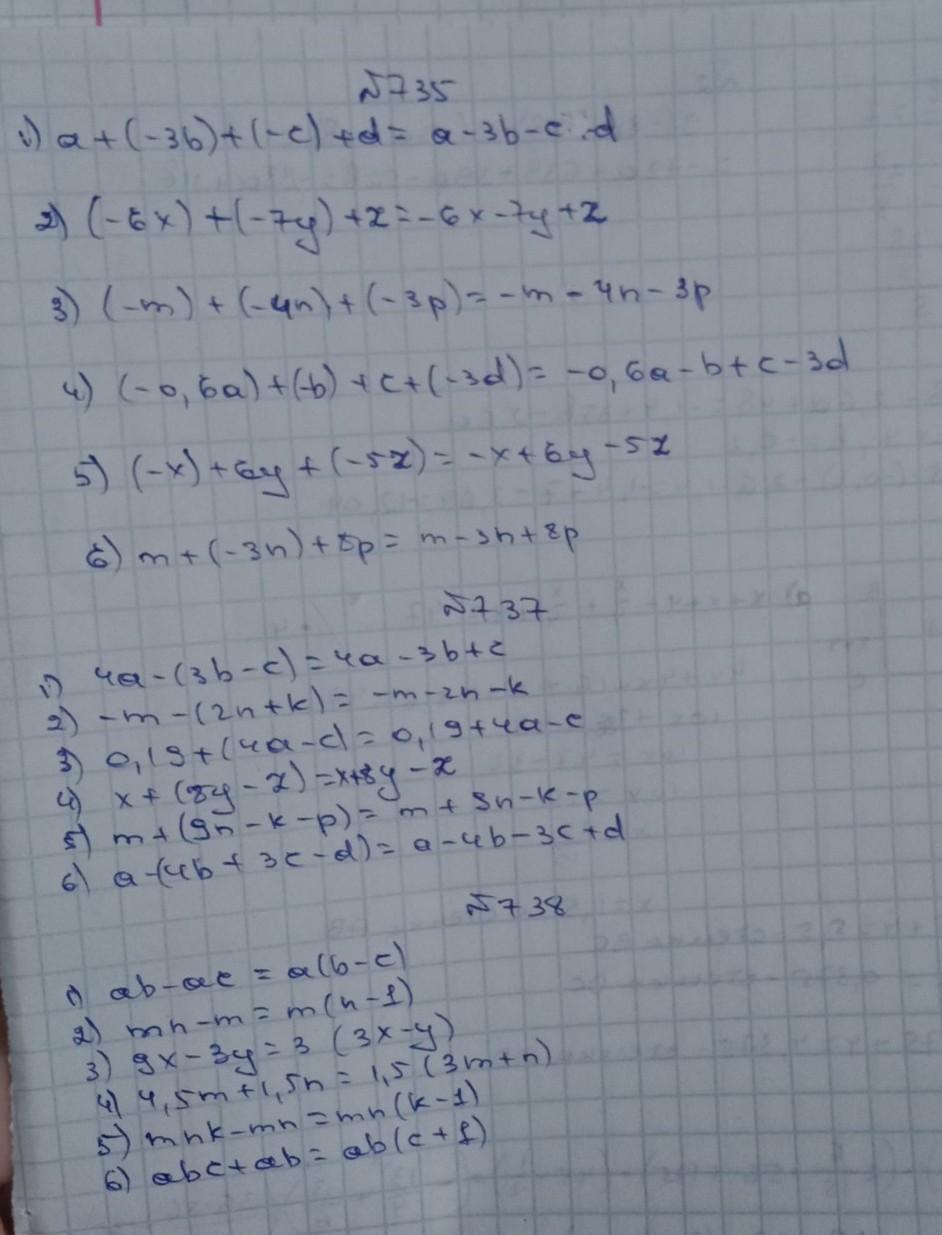 №735
1) a+(-3b)+(-c)+d= a-3b-c -d
2) (-6x)+(-7y)+z=-6x-7y+z
3) (-m)+(-4n)+(-3p)=-m-4n-3p
4) (-0,6a)+(-b)+c+(-3d)=-0,6a-b+c-3d
5) (-x)+6y+(-5z)=-x+6y-5z
6) m+(-3n)+8p=m-3n+8p
№737
1) 4a-(3b-c)=4a-3b+c
2) -m-(2n+k)=-m-2n-k
3) 0,19+(4a-c)=0,19+4a-c
4) x+(8y-z)=x+8y-z
5) m+(9n-k-p)=m+9n-k-p
6) a-(4b+3c-d)=a-4b-3c+d
№738
1) ab-ac=a(b-c)
2) mn-m=m(n-1)
3) 9x-3y=3(3x-y)
4) 4,5m+1,5n=1,5(3m+n)
5) mnk-mn=mn(k-1)
6) abc+ab=ab(c+1)